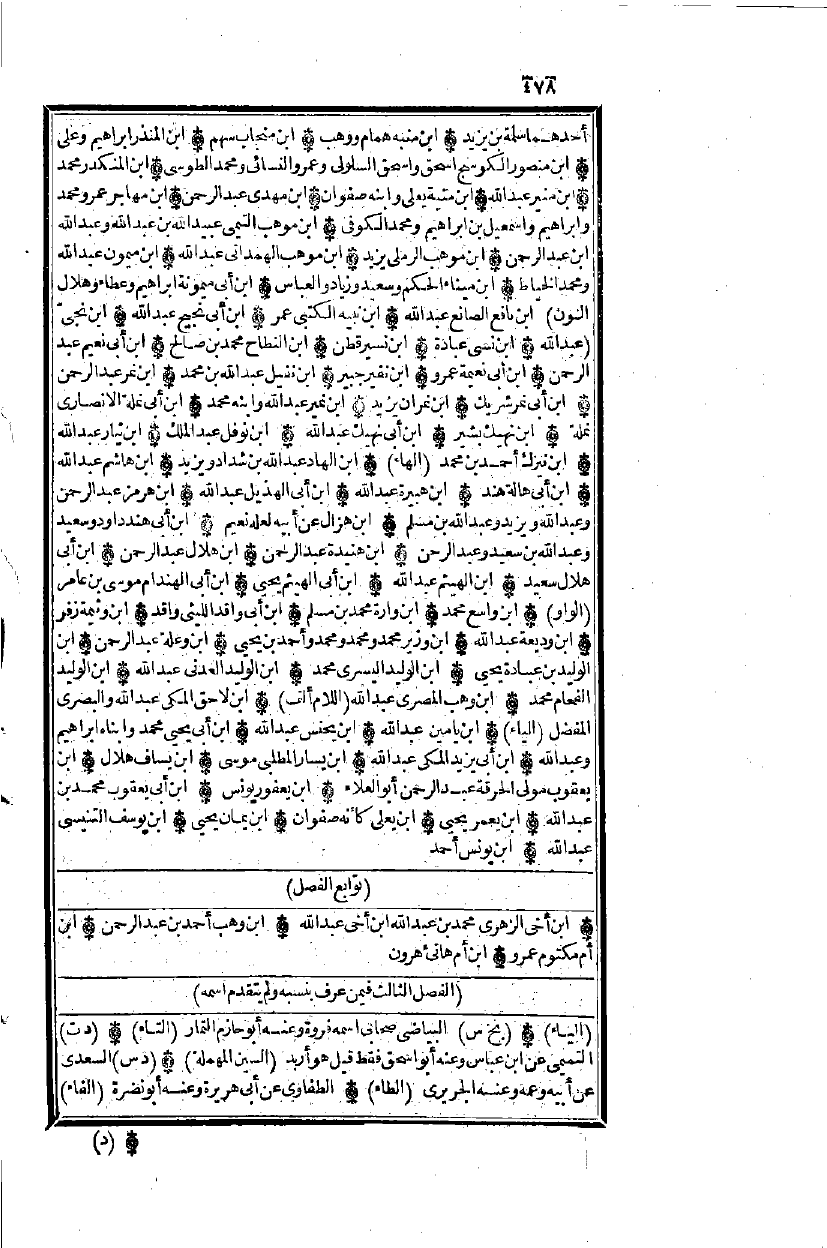 ٤٧٨
أحدهـما سلمة بن يزيد * ابن منبه همام ووهب * ابن منجاب سهم * ابن المنذر ابراهيم وعلى
* ابن منصور الكوسج اسحق واسحق السلولى وعمرو النسائى ومحمد الطوسى * ابن المنكدر محمد
* ابن منير عبدالله * ابن منية يعلى وابنه صفوان * ابن مهدى عبدالرحمن * ابن مهاجر عمرو ومحمد
وابراهيم واسمعيل بن ابراهيم ومحمد الكوفى * ابن موهب التيمى عبيدالله بن عبدالله وعبدالله
ابن عبدالرحمن * ابن موهب الرملى يزيد * ابن موهب الهمدانى عبدالله * ابن ميمون عبدالله
ومحمد الخياط * ابن ميناء الحكم وسعيد وزياد والعباس * ابن أبى ميمونة ابراهيم وعطاء وهلال
(النون) ابن نافع الصائغ عبدالله * ابن نبيه الكتبى عمر * ابن أبى نجيح عبدالله * ابن نجى
(عبدالله * ابن نسى عبادة * ابن نسير قطن * ابن النطاح محمد بن صالح * ابن أبى نعيم عبد
الرحمن * ابن أبى نعيمة عمرو * ابن نفير جبير * ابن نفيل عبدالله بن محمد * ابن نمر عبدالرحمن
* ابن أبى نمر شريك * ابن نمران يزيد * ابن نمير عبدالله وابنه محمد * ابن أبى نملة الانصارى
نملة * ابن نهيك بشير * ابن أبى نهيك عبدالله * ابن نوفل عبدالملك * ابن نيار عبدالله
* ابن نيزك أحمـد بن محمد (الهاء) * ابن الهاد عبدالله بن شداد ويزيد * ابن هاشم عبدالله
* ابن أبى هالة هند * ابن هبيرة عبدالله * ابن أبى الهذيل عبدالله * ابن هرمز عبدالرحمن
وعبدالله ويزيد وعبدالله بن مسلم * ابن هزال عن أبيه لعله نعيم * ابن أبى هند داود وسعيد
وعبدالله بن سعيد وعبدالرحمن * ابن هنيدة عبدالرحمن * ابن هلال عبدالرحمن * ابن أبى
هلال سعيد * ابن الهيثم عبدالله * ابن أبى الهيثم يحيى * ابن أبى الهندام موسى بن عامر
(الواو) * ابن واسع محمد * ابن وارة محمد بن مسلم * ابن أبى واقد الليثى واقد * ابن وثيمة زفر
* ابن وديعة عبدالله * ابن وزير محمد ومحمد ومحمد وأحمد بن يحيى * ابن وعلة عبدالرحمن * ابن
الوليد بن عبادة يحيى * ابن الوليد اليسرى محمد * ابن الوليد العدنى عبدالله * ابن الوليد
الفحام محمد * ابن وهب المصرى عبدالله (اللام ألف) * ابن لاحق المكى عبدالله والبصرى
المفضل (الياء) * ابن يامين عبدالله * ابن يحنس عبدالله * ابن أبى يحيى محمد وابناه ابراهيم
وعبدالله * ابن أبى يزيد المكى عبيدالله * ابن يسار المطلبى موسى * ابن يساف هلال * ابن
يعقوب مولى الحرقة عبـدالرحمن أبو العلاء * ابن يعفور يونس * ابن أبى يعقوب محمـد بن
عبدالله * ابن يعمر يحيى * ابن يعلى كأنه صفوان * ابن يمان يحيى * ابن يوسف التنيسى
عبدالله * ابن يونس أحمد
(توابع الفصل)
* ابن أخى الزهرى محمد بن عبدالله ابن أخى عبدالله * ابن وهب أحمد بن عبدالرحمن * ابن
أم مكتوم عمرو * ابن أم هانئ هرون
(الفصل الثالث فيمن عرف بنسبه ولم يتقدم اسمه)
(البـاء) * (بخ س) البياضى صحابى اسمه فروة وعنـه أبو حازم التمار (التـاء) * (د ت)
التميمى عن ابن عباس وعنه أبو اسحق فقط قيل هو أربد (السين المهملة) * (د س) السعدى
عن أبيه وعمه وعنـه الجريرى (الطاء) * الطفاوى عن أبى هريرة وعنـه أبو نضرة (الفاء)
* (د)